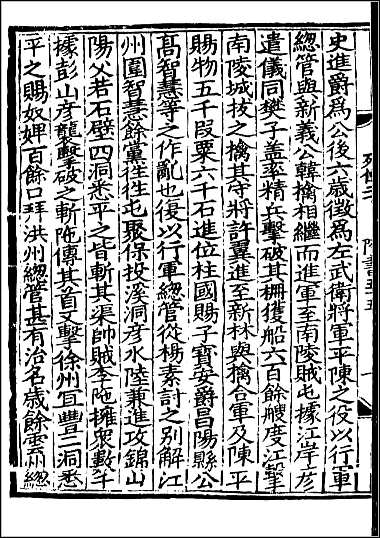 史進爵為公後六歲徵為左武衛將軍平陳之役以行軍
緫管與新義公韓擒相繼而進軍至南陵賊屯據江岸彥
遣儀同樊子盖率精兵擊破其柵獲船六百餘艘度江擊
南陵城拔之擒其守將許翼進至新林與擒合軍及陳平
賜物五千段粟六千石進位柱國賜子寶安爵昌陽縣公
高智慧等之作亂也復以行軍緫管從楊素討之别解江
州圍智慧餘黨徃徃屯聚保投溪洞彥水陸兼進攻錦山
陽父若石壁四洞悉平之皆斬其渠帥賊李陁擁衆數千
據彭山彥襲擊破之斬陁傳其首又擊徐州宜豐二洞悉
平之賜奴婢百餘口拜洪州緫管甚有治名歲餘雲州緫
列傳二
隋書五五